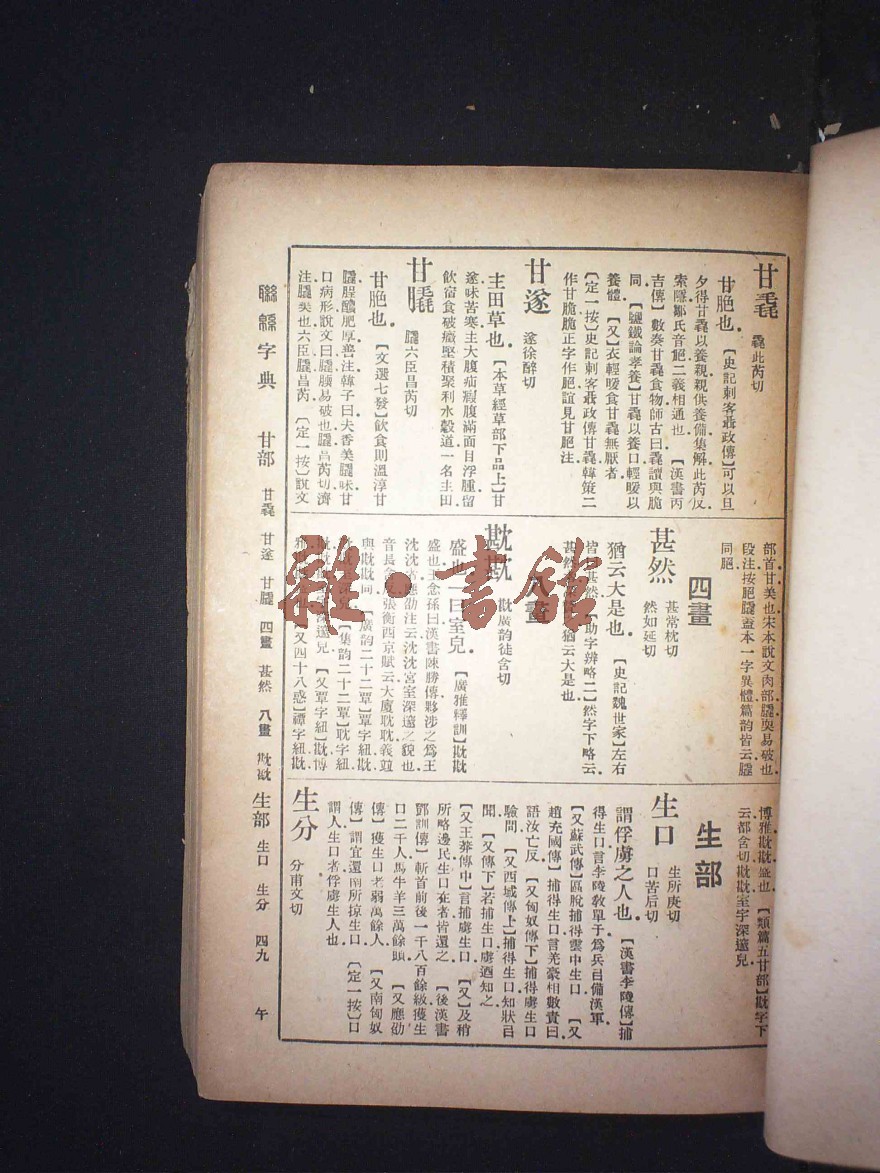 甘毳
毳此芮切
甘脃也．【史記刺客聶政傳】可以旦
夕得甘毳以養親．親供養備．集解此芮反．
索隱鄒氏音脃．二義相通也．【漢書丙
吉傳】數奏甘毳食物．師古曰．毳讀與脆
同．【鹽鐵論孝養】甘毳以養口．輕暖以
養體．【又】衣輕暖．食甘毳．無厭者
【定一按】史記刺客聶政傳甘毳．韓策二
作甘脆．脆正字作脃．誼見甘脃注．
甘遂
遂徐醉切
主田草也．【本草經草部下品上】甘
遂味苦寒．主大腹疝瘕腹滿．面目浮腫．留
飲宿食．破癥堅積聚．利水穀道．一名主田．
甘膬
膬六臣昌芮切
甘脃也．【文選七發】飲食則溫淳甘
膬．脭醲肥厚．善注韓子曰．夫香美膬味．甘
口病形．說文曰．膬耎易破也．膬．昌芮切．濟
注．膬．㚟也．六臣膬昌芮．【定一按】說文
部首甘．美也．宋本說文肉部膬．耎易破也．
段注按脃膬蓋本一字異體．篇韵皆云膬
同脃．
四畫
甚然
甚常枕切
然如延切
猶云大是也．【史記魏世家】左右
皆甚然．【助字辨略二】然字下略云
甚然猶云大是也．
八畫
㽎㽎
㽎廣韵徒含切
盛也．一曰室皃．【廣雅釋訓】㽎㽎
盛也．王念孫曰．漢書陳勝傳夥涉之爲王
沈沈者．應劭注云．沈沈宮室深邃之貌也．
音長含反．張衡西京賦云．大廈耽耽．義竝
與㽎㽎同．【廣韵二十二覃】覃字紐
【集韵二十二覃】耽字紐
深邃皃．【又覃字紐】㽎博
【又四十八感】禫字紐㽎
博雅㽎㽎盛也．【類篇五甘部】㽎字下
云都含切．㽎㽎室宇深邃皃．
生部
生口
生所庚切
口苦后切
謂俘虜之人也．【漢書李陵傳】捕
得生口．言李陵敎單于爲兵㠯備漢軍．
【又蘇武傳】區脫捕得雲中生口．【又
趙充國傳】捕得生口．言羌豪相數責曰．
語汝亡反．【又匈奴傳下】捕得虜生口
驗問．【又西域傳上】捕得生口．知狀㠯
聞．【又傳下】若捕生口虜．迺知之
【又王莽傳中】言捕虜生口．【又】及稍
所略邊民生口在者皆還之．【後漢書
鄧訓傳】斬首前後一千八百餘級．獲生
口二千人．馬牛羊三萬餘頭．【又應劭
傳】獲生口老弱萬餘人．【又南匈奴
傳】謂宜還南所掠生口．【定一按】口
謂人．生口者．俘虜生人也．
生分
分甫文切
聯緜字典　甘部　甘毳　甘遂　甘膬　四畫　甚然　八畫　㽎㽎　生部　生口　生分　四九　午
雜·書館